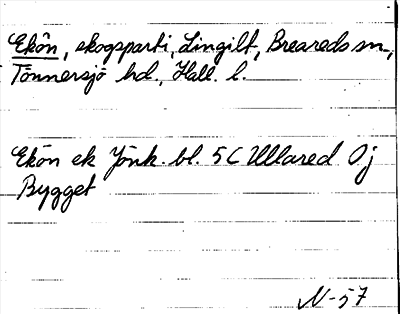 Ekön, skogsparti, Lingilt, Breareds sn,
Tönnersjö hd., Hall. l.
Ekön ek Jönk. bl. 5C Ullared Öj
Bygget
N-57